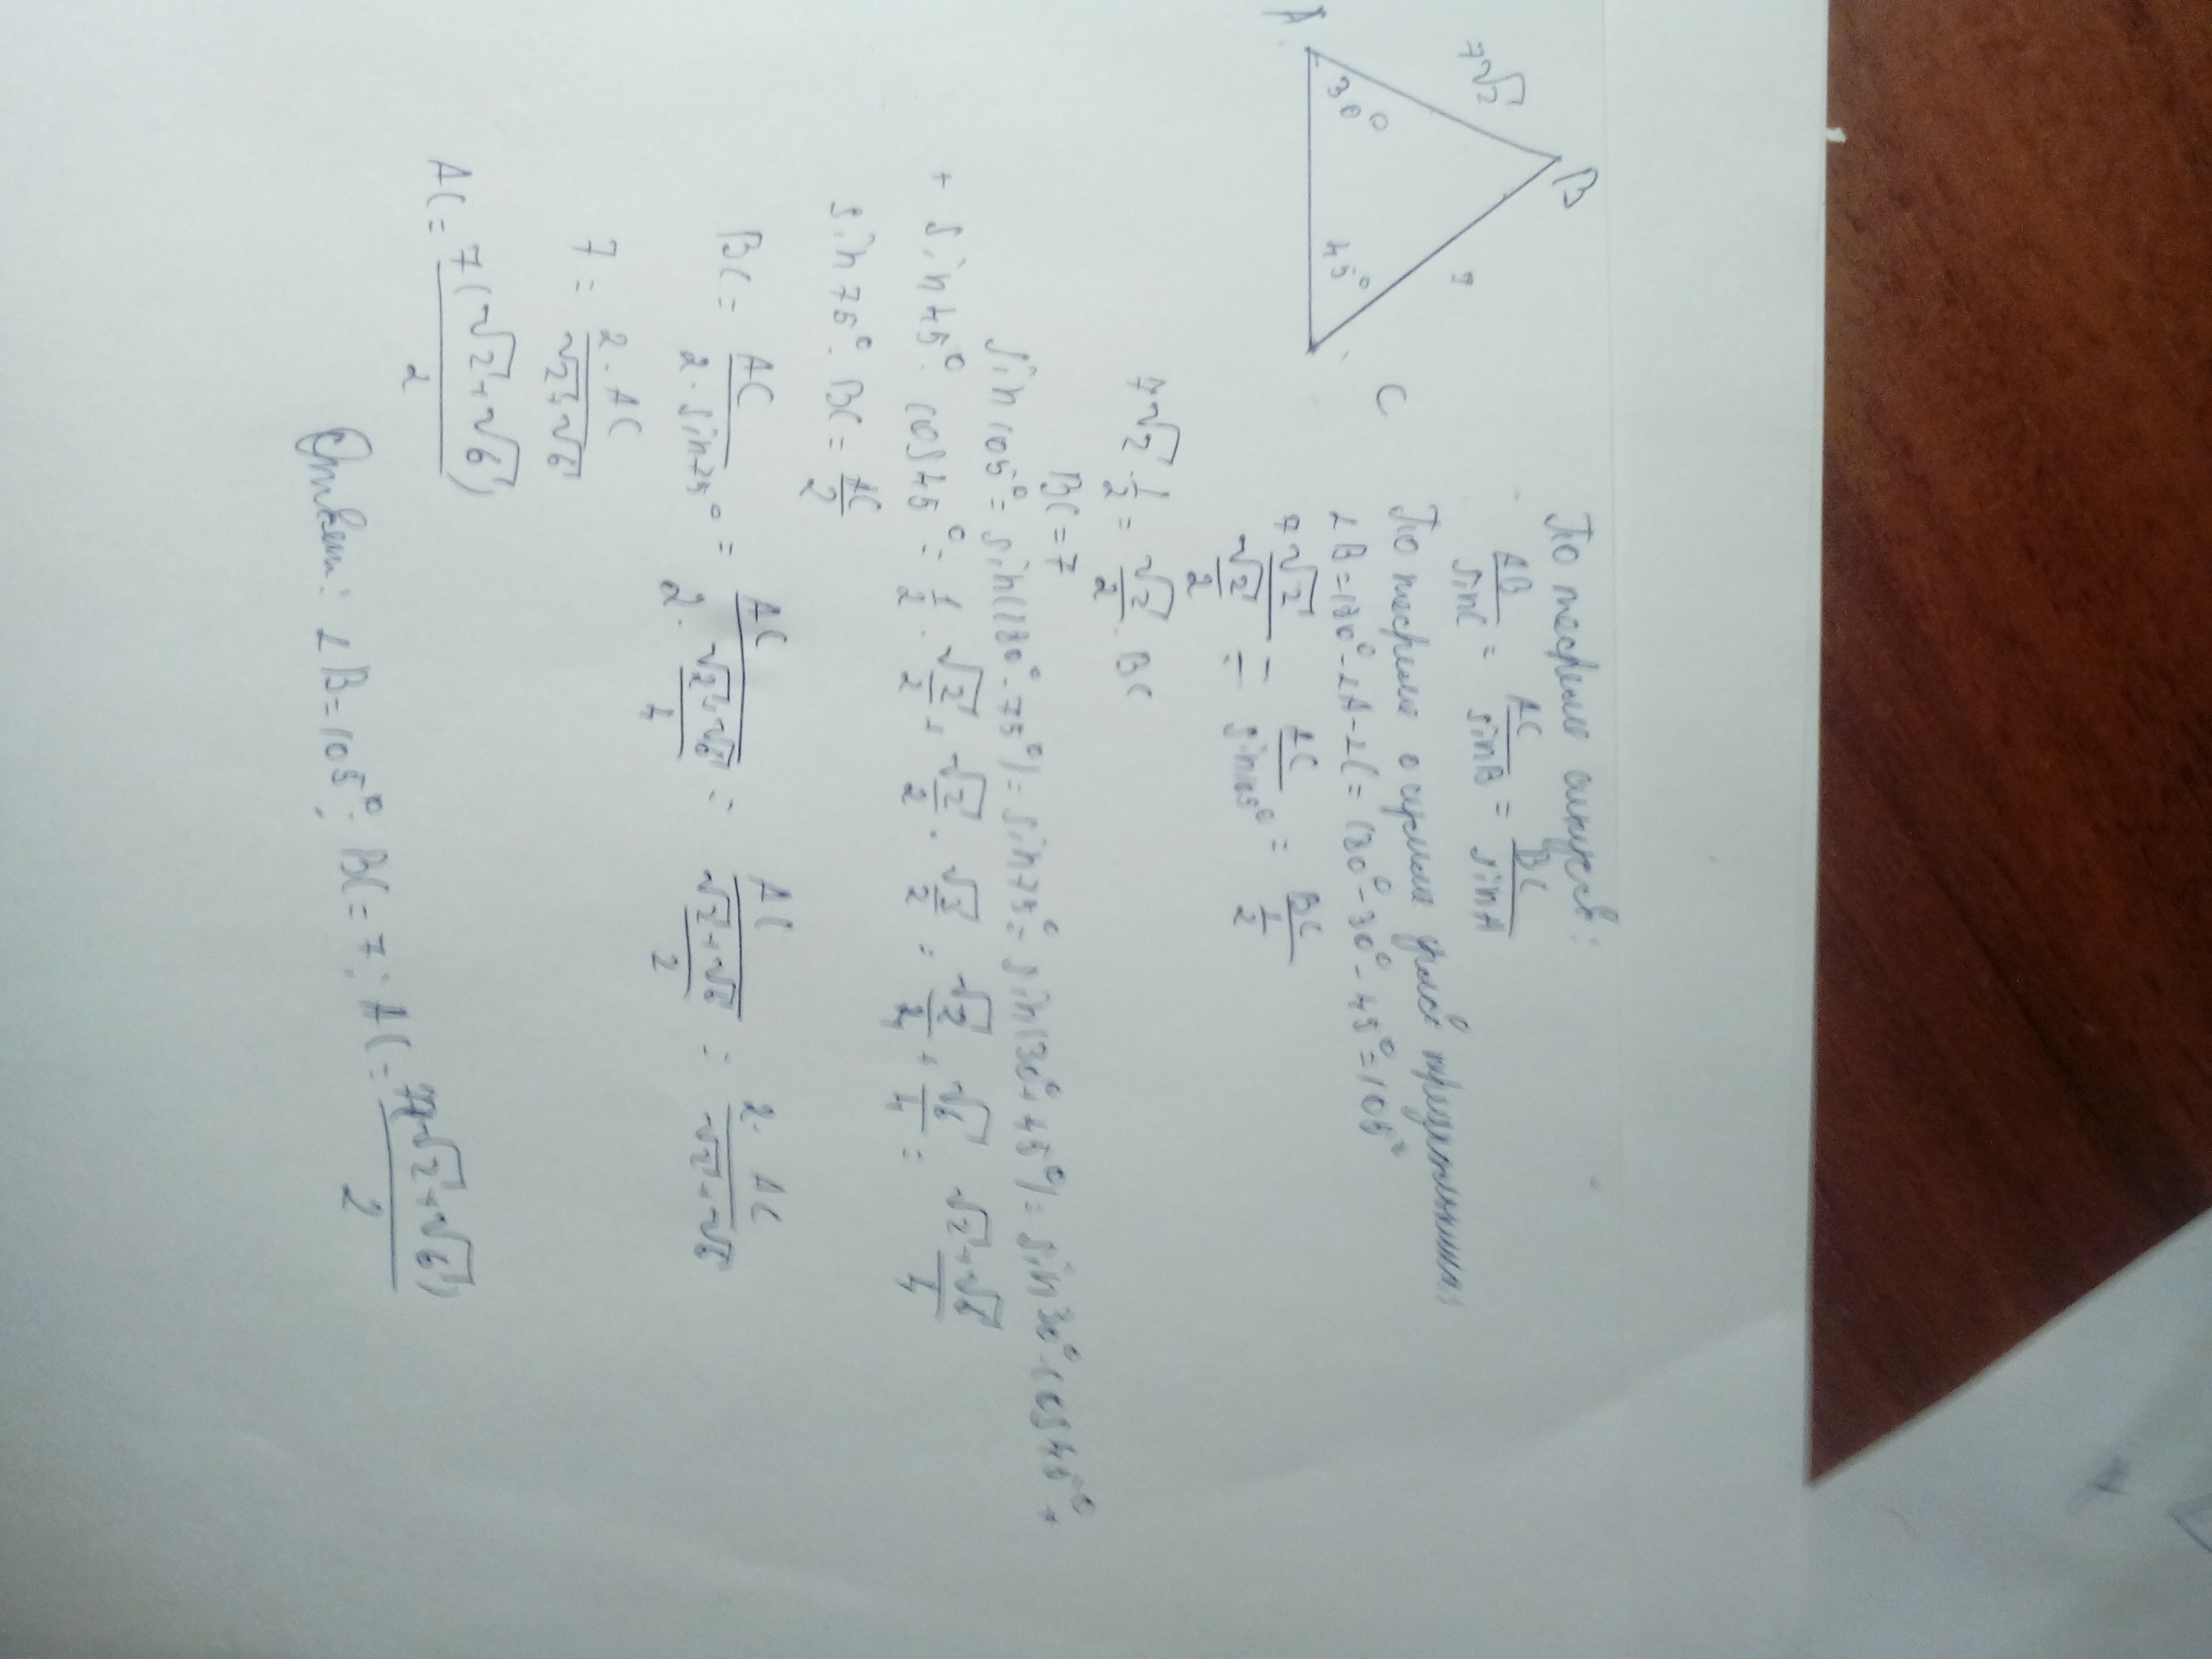 A
7√2
B
?
30°
45°
C
По теореме синусов:
AB/sinC = AC/sinB = BC/sinA
По теореме о сумме углов треугольника:
∠B=180°-∠A-∠C=180°-30°-45°=105°
7√2/(√2/2) = AC/sin105° = BC/(1/2)
7√2·1/2 = √2/2·BC
BC=7
sin105°=sin(180°-75°)=sin75°=sin(30°+45°)=sin30°·cos45°+
+sin45°·cos45°=1/2·√2/2+√2/2·√3/2=√2/4+√6/4=(√2+√6)/4
sin75°·BC=AC/2
BC=AC/(2·sin75°)=AC/(2·(√2+√6)/4)=AC/((√2+√6)/2)=2·AC/(√2+√6)
7=2·AC/(√2+√6)
AC=7(√2+√6)/2
Ответ: ∠B=105°; BC=7; AC=7(√2+√6)/2